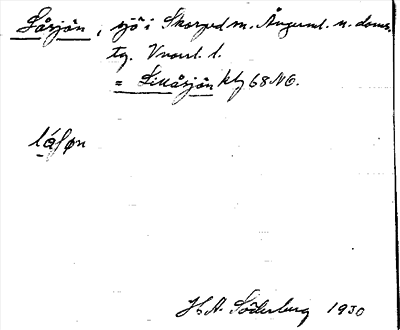 Låsjön, sjö i Skorped sn. Ångerml. n. doms.
tg. Vnorrl. l.
= Lillåsjön kbl 68 NO.
låſøn
H.A. Söderberg 1930